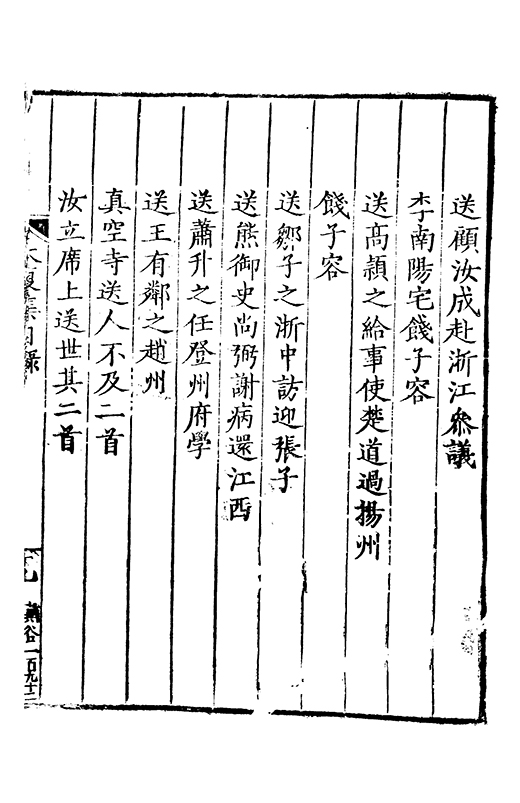 送顧汝成赴浙江叅議
李南陽宅餞子容
送高頴之給事使楚道過揚州
餞子容
送鄒子之浙中訪迎張子
送熊御史尚弼謝病還江西
送蕭升之任登州府學
送王有鄰之趙州
真空寺送人不及二首
汝立席上送世其二首
目錄
谷一百九十二